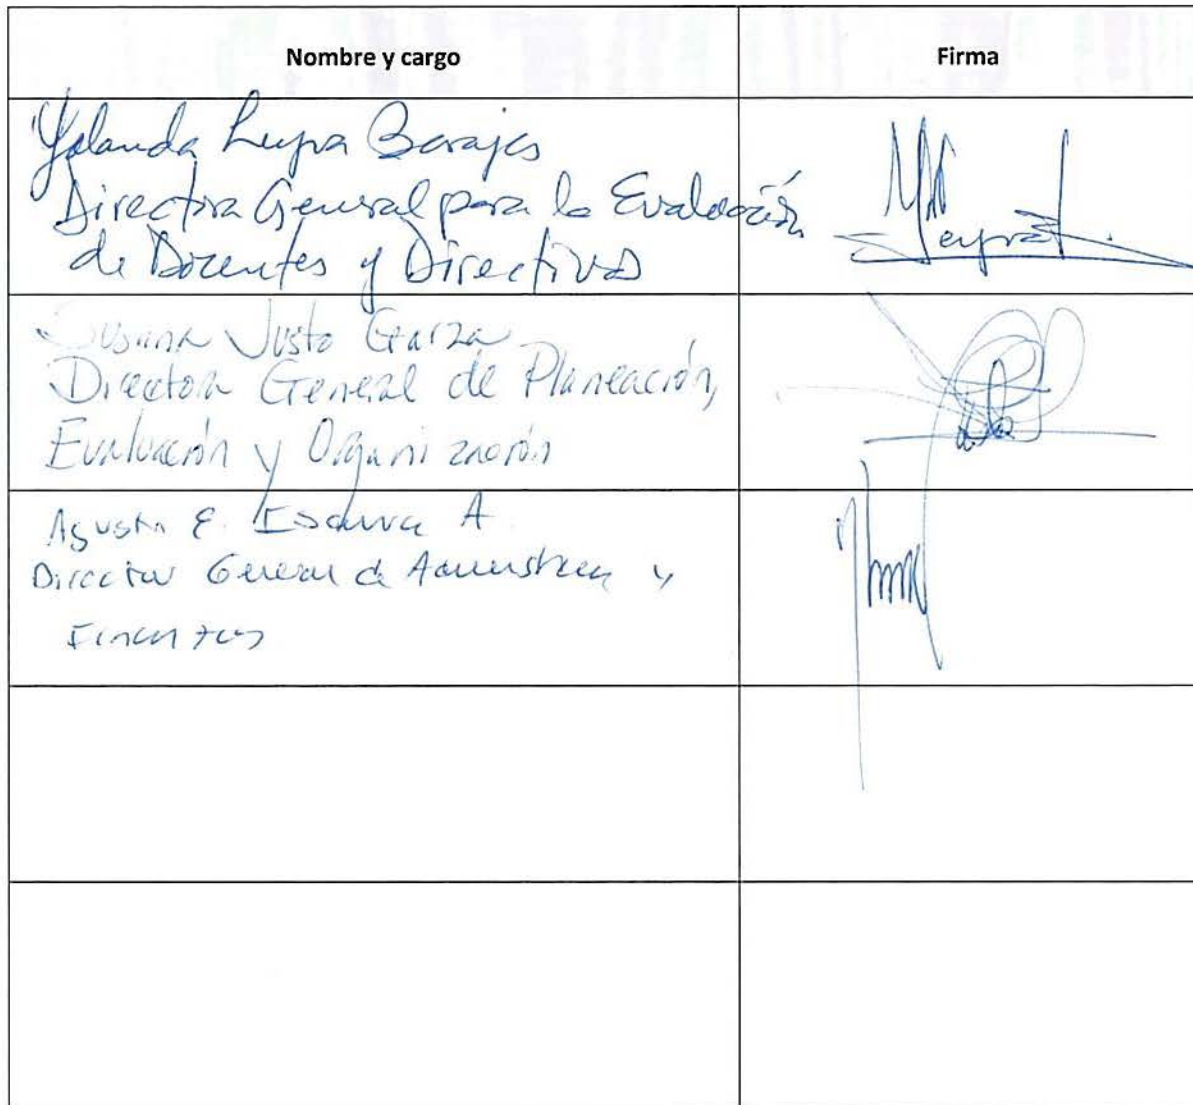 Nombre y cargo
Firma
Yolanda Leyva Barajas
Directora General para la Evaluación
de Docentes y Directivos
Susana Justo Garza
Directora General de Planeación,
Evaluación y Organización
Agustín E. A.
Director General de Administración y
Finanzas